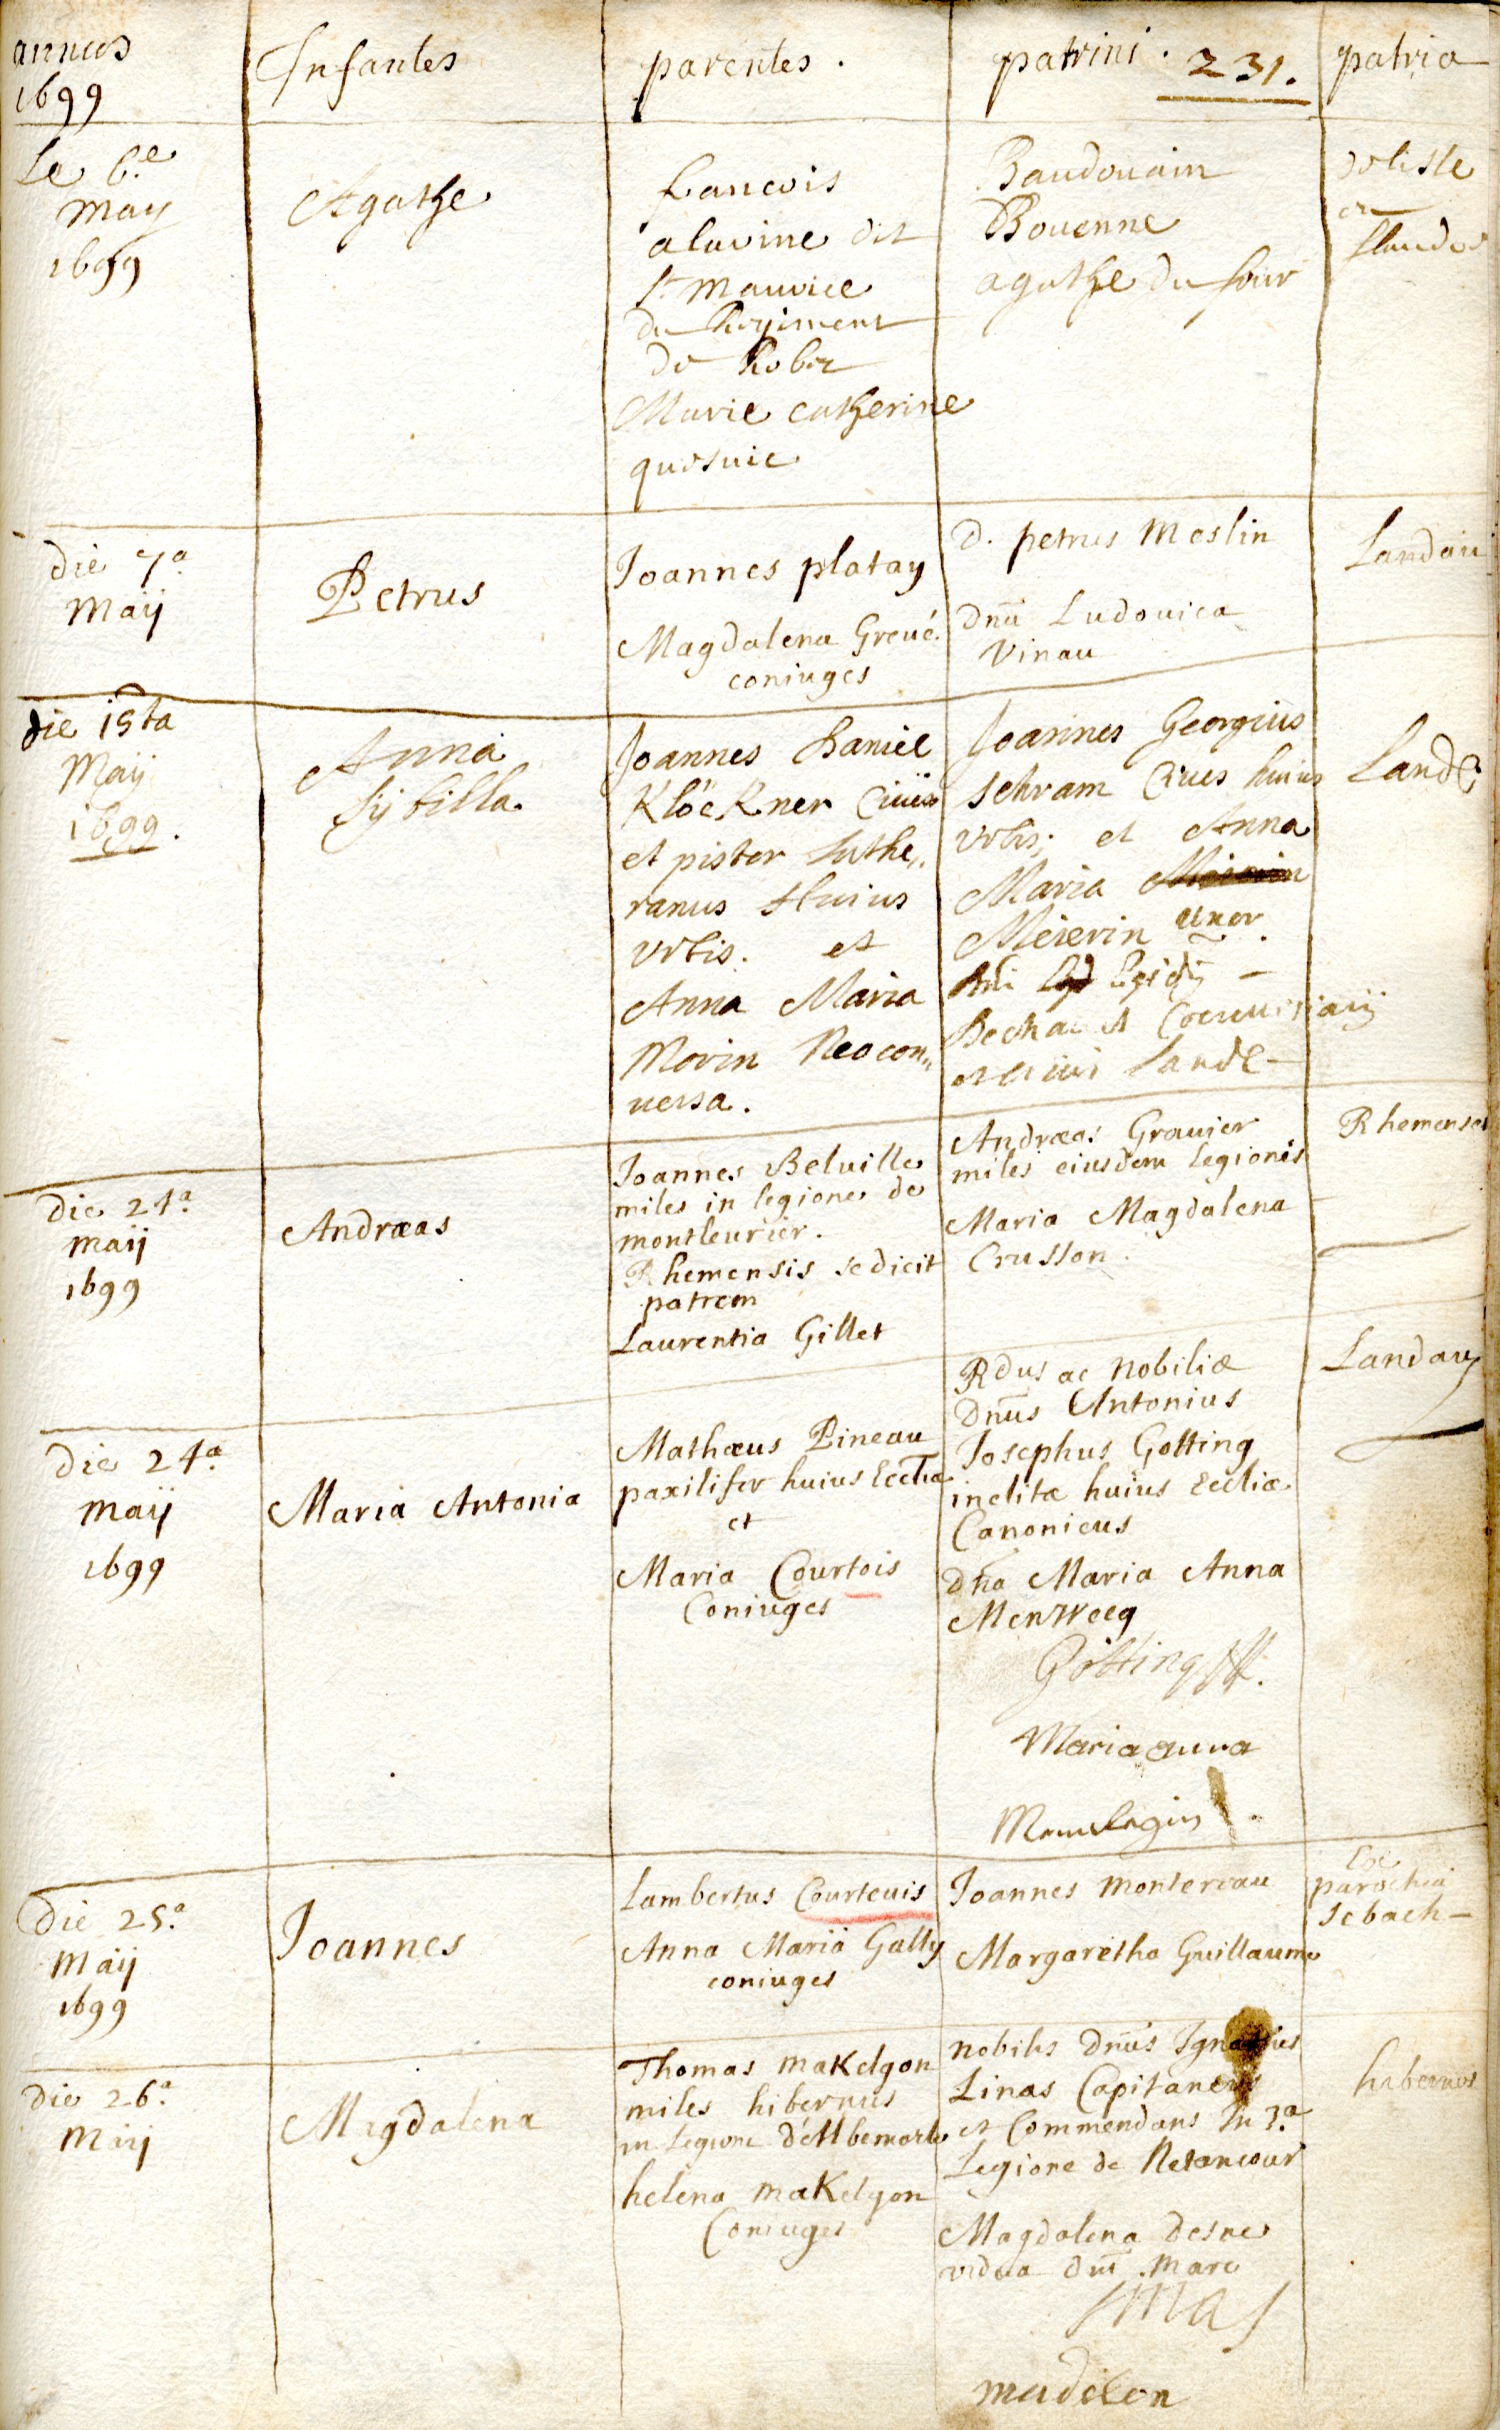 annus
1699
Infantes
parentes .
patrini . 231.
patria
Le 6.e
May
1699
Agathe
francois
alavine dit
St maurice
du Regiment
de Robec
Marie catherine
Baudouain
Bouenne
agathe du four
de lisle
en
flandes
die 7a
Maij
Petrus
Joannes platay
Magdalena Greué.
coniuges
D. petrus Meslin
Dna Ludouica
Vinau
Landau
die 15ta
Maij
1699.
Anna
Sybilla.
Joannes Daniel
Klöckner Ciuis
et pister luthe,,
ranus Huius
Vrbis. et
Anna Maria
Morin Neocon,,
uersa.
Joannes Georgius
schram Ciues huius
Vrbis; et Anna
Maria
Meierin uxor
Landę
die 24.a
maij
1699
Andræas
Joannes Beluille
miles in legione de
montleurier.
Rhemensis se dicit
patrem
Laurentia Gillet
Andræas Grauier
miles eiusdem legionis
Maria Magdalena
Crusson.
Rhemenses
die 24.a
Maij
1699
Maria Antonia
Mathæus Pineau
paxilifer huius Eccliæ
et
Maria Courtois
Coniuges
Rdus ac Nobiliæ
Dnus Antonius
Josephus Gotting
inclitæ huius Eccliæ
Canonicus
Dna Maria Anna
Menweeg
Götting
Maria anna
Landau
Die 25.a
Maij
1699
Joannes
Lambertus Courteuis
Anna Maria Gally
coniuges
Joannes montereau
Margaretha Guillaume
parochia
Sebach –
die 26.a
Maij
Magdalena
Thomas makelgon
miles hibernus
in Legione d'Albemarle
helena makelgon
Coniuges
Nobilis Dnus Ignatius
Linas Capitaneus
et Commendans in 3.a
Legione de Netancour
Magdalena Desne
vidua Dni Marc
madelon
hibernus